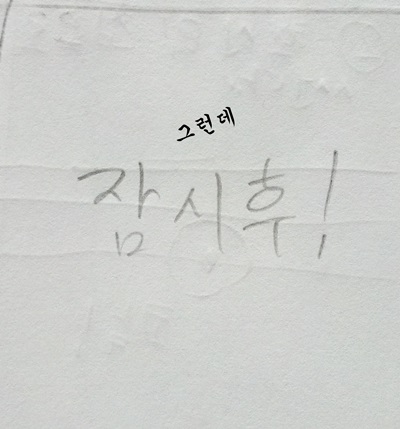 그런데
잠시후!